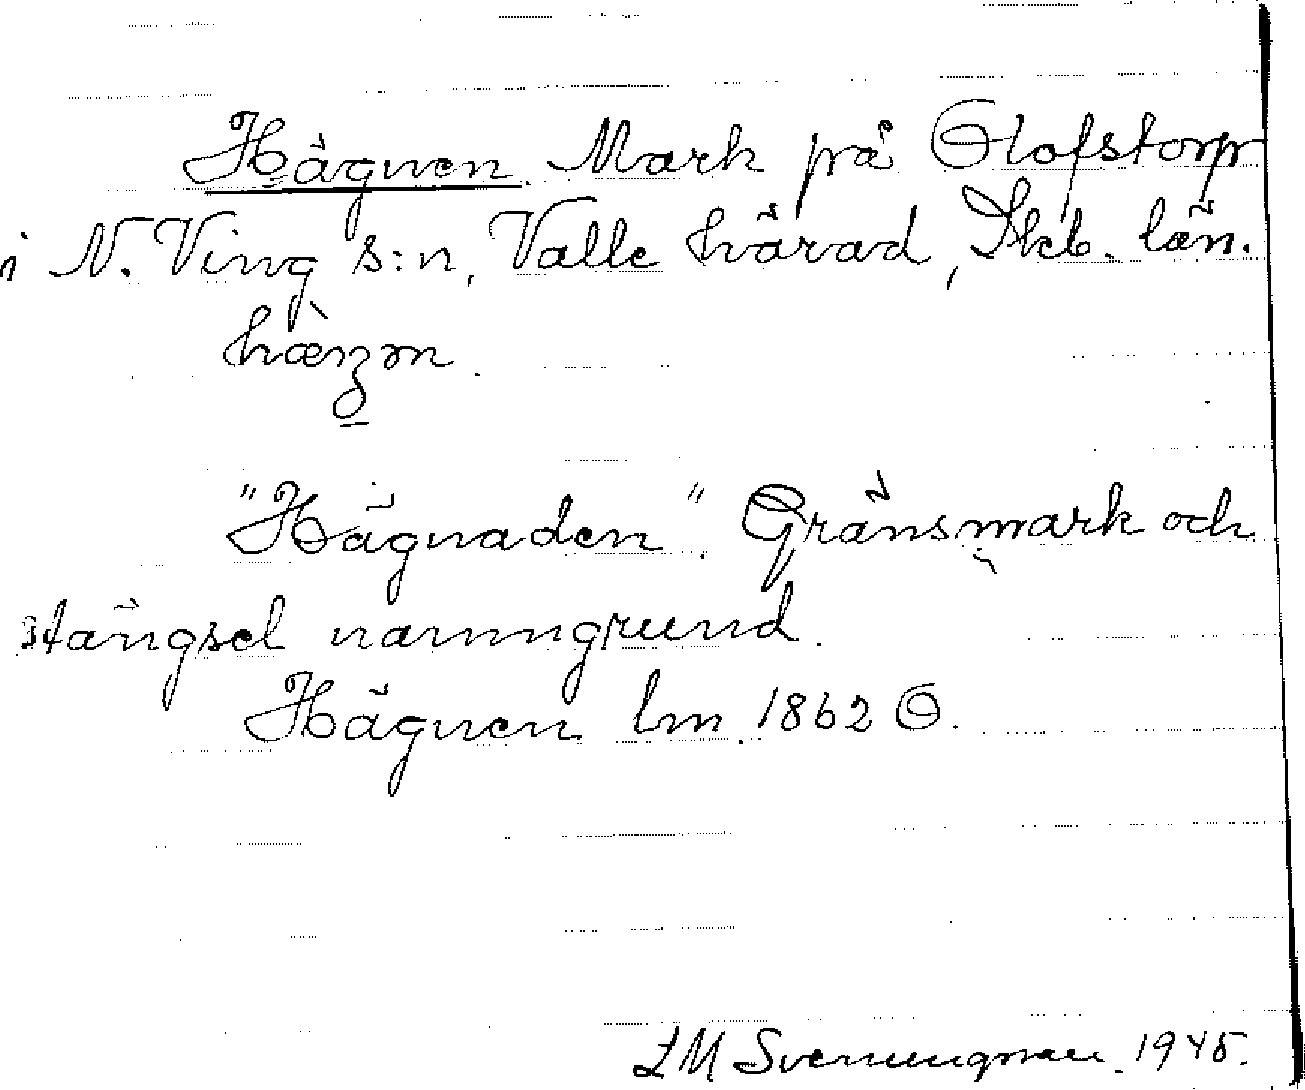 Hägnen. Mark på Olofstorp
i N. Ving s:n, Valle härad, Skb. län.
"Hägnaden". Gränsmark och
stängsel namngrund.
Hägnen lm. 1862 O.
L M Svenungsson. 1945.